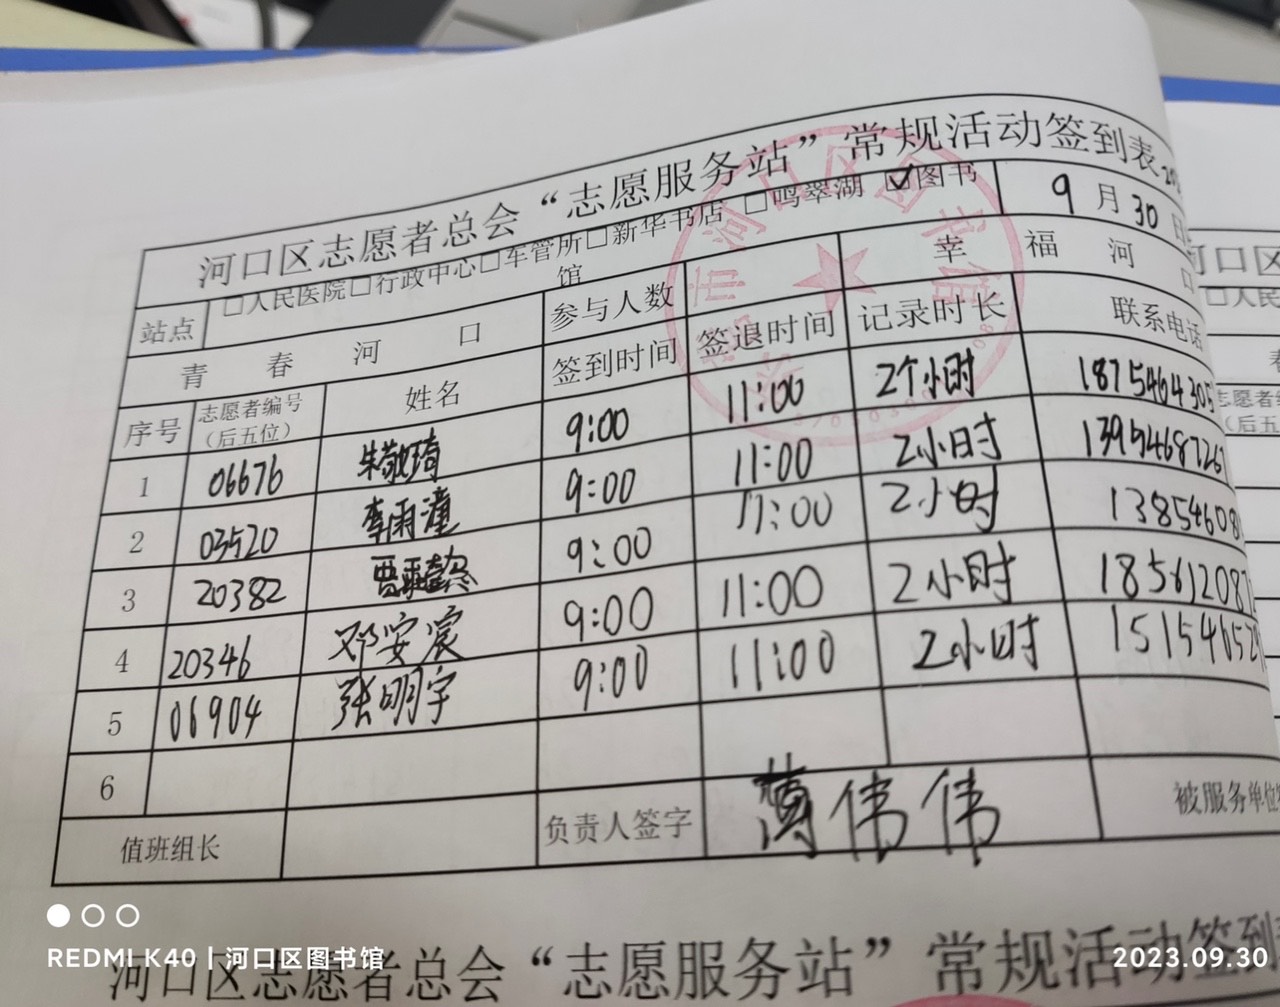 河口区志愿者总会“志愿服务站”常规活动签到表
站点 □人民医院□行政中心□车管所□新华书店 □鸣翠湖 ☑图书馆 9月30日
青春河口 参与人数 幸福河口
序号 志愿者编号（后五位） 姓名 签到时间 签退时间 记录时长 联系电话
1 06676 朱敬琦 9:00 11:00 2个小时 1875464305
2 03520 李雨潼 9:00 11:00 2小时 1395468726
3 20382 9:00 11:00 2小时 13854608
4 20346 邓安宸 9:00 11:00 2小时 185612087
5 06904 张明宇 9:00 11:00 2小时 15154652
6
值班组长 负责人签字 伟伟 被服务单位
河口区志愿者总会“志愿服务站”常规活动签到
河口区图书馆
REDMI K40 | 河口区图书馆
2023.09.30
口区
□人民
志愿者编
（后五